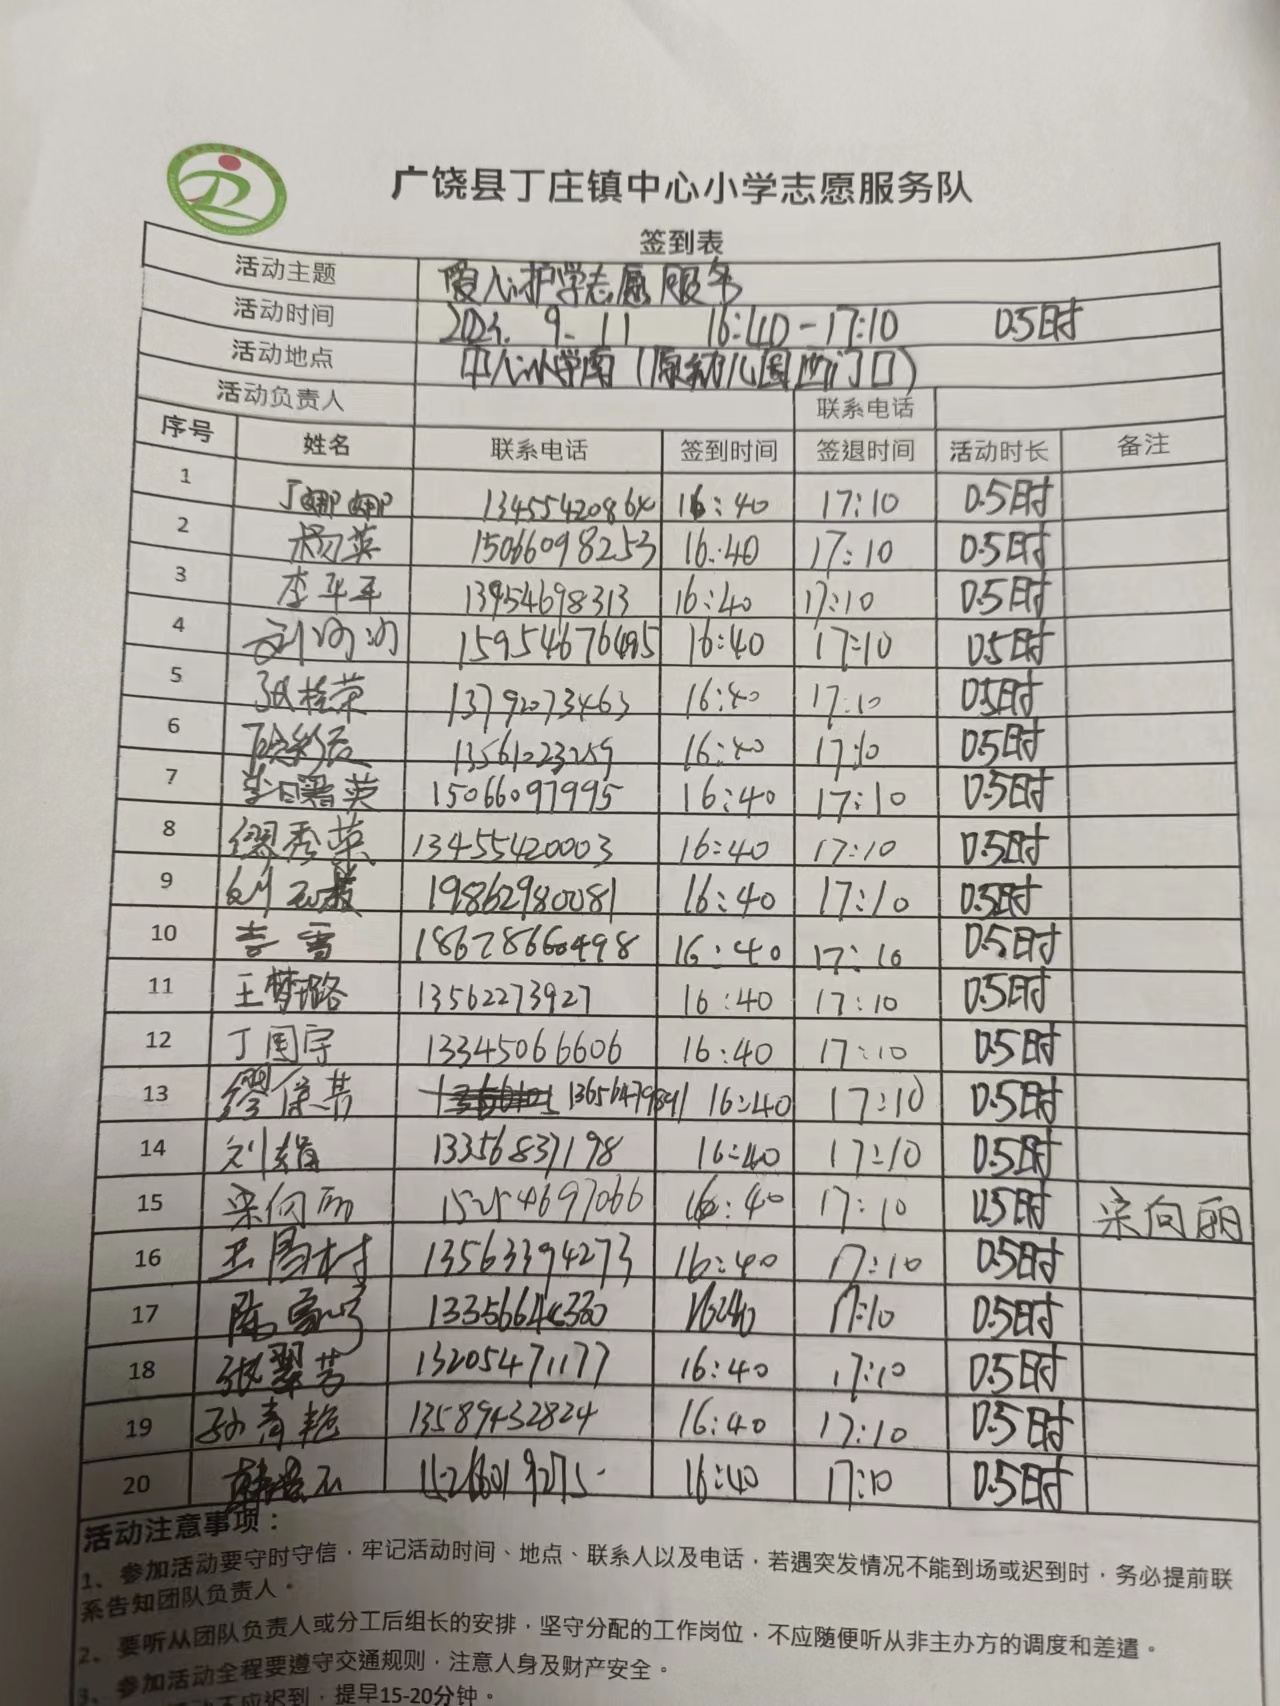 广饶县丁庄镇中心小学志愿服务队
签到表
活动主题 爱心护学志愿服务
活动时间 9.11 16:40-17:10 0.5时
活动地点 中心小学南(原幼儿园西门口)
活动负责人 联系电话
序号 姓名 联系电话 签到时间 签退时间 活动时长 备注
1 丁娜娜 16:40 17:10 0.5时
2 杨英 15066098253 16:40 17:10 0.5时
3 李平平 13954698313 16:40 17:10 0.5时
4 刘 16:40 17:10 0.5时
5 张桂荣 13792073463 16:40 17:10 0.5时
6 13561223259 16:40 17:10 0.5时
7 李曙英 15066097995 16:40 17:10 0.5时
8 缪秀英 13455420003 16:40 17:10 0.5时
9 19862980081 16:40 17:10 0.5时
10 李雪 18678660498 16:40 17:10 0.5时
11 王梦璐 13562273927 16:40 17:10 0.5时
12 丁国宇 13345066606 16:40 17:10 0.5时
13 13656479891 16:40 17:10 0.5时
14 刘娟 13356837198 16:40 17:10 0.5时
15 宋向丽 15254697066 16:40 17:10 0.5时 宋向丽
16 13563394273 16:40 17:10 0.5时
17 陈 16:40 17:10 0.5时
18 张翠芳 13205471177 16:40 17:10 0.5时
19 孙青艳 13589432824 16:40 17:10 0.5时
20 16:40 17:10 0.5时
活动注意事项:
1、参加活动要守时守信,牢记活动时间、地点、联系人以及电话,若遇突发情况不能到场或迟到时,务必提前联
系告知团队负责人。
2、要听从团队负责人或分工后组长的安排,坚守分配的工作岗位,不应随便听从非主办方的调度和差遣。
3、参加活动全程要遵守交通规则,注意人身及财产安全。
不应迟到,提早15-20分钟。